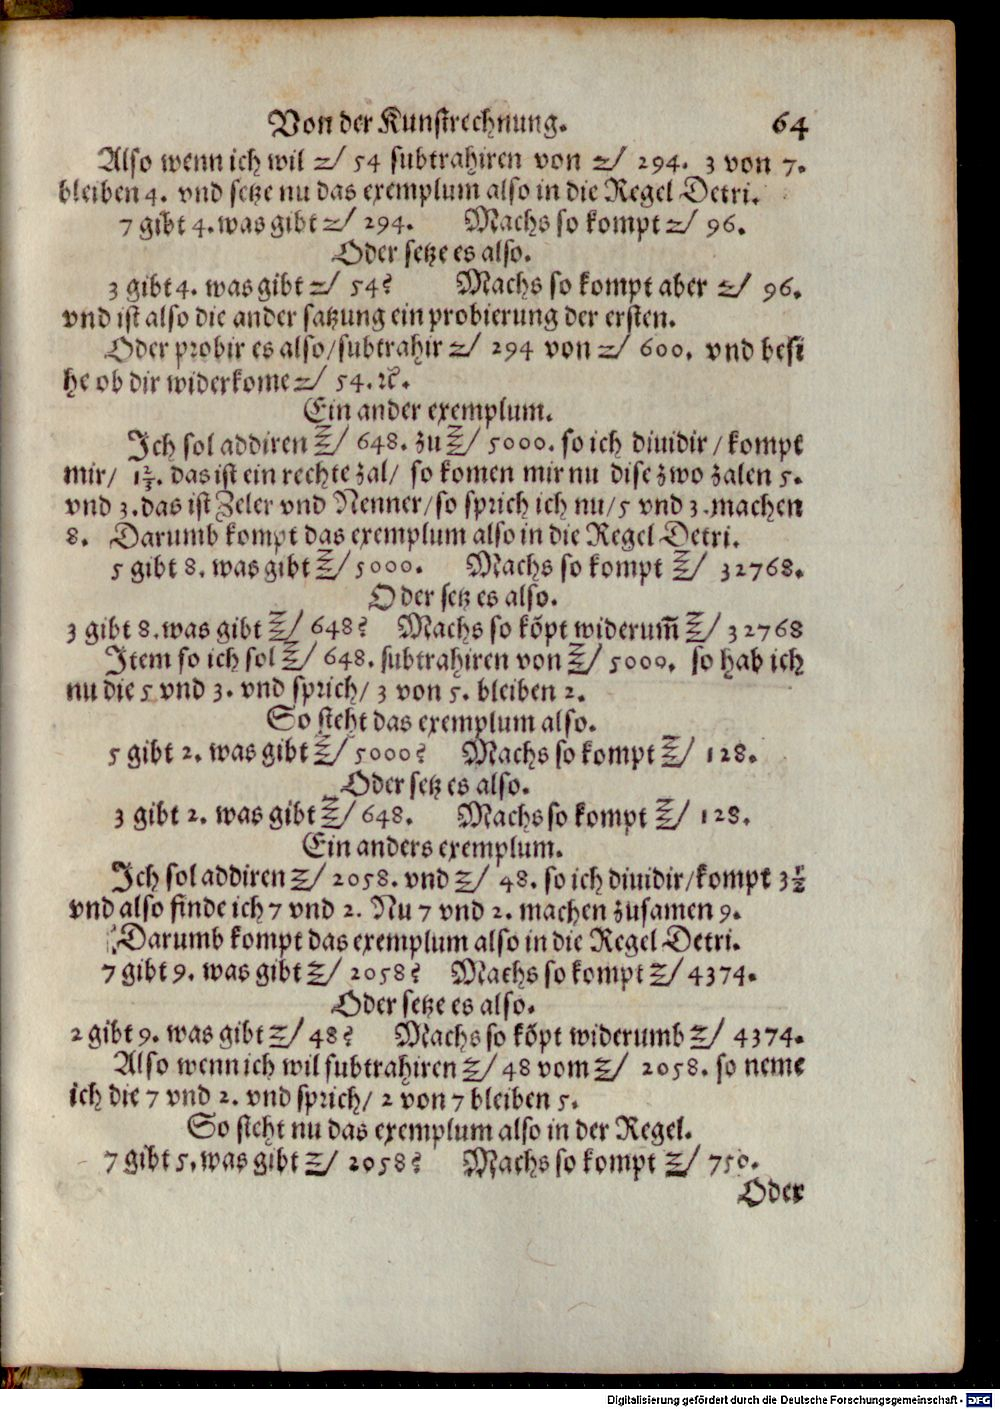 Von der Kunstrechnung. 64
Also wenn ich wil √/ 54 subtrahiren von √/ 294. 3 von 7.
bleiben 4. vnd setze nu das exemplum also in die Regel Detri.
7 gibt 4. was gibt √/ 294. Machs so kompt √/ 96.
Oder setze es also.
3 gibt 4. was gibt √/ 54? Machs so kompt aber √/ 96.
vnd ist also die ander satzung ein probierung der ersten.
Oder probir es also/subtrahir √/ 294 von √/ 600. vnd besi
he ob dir widerkome √/ 54. ꝛc.
Ein ander exemplum.
Ich sol addiren √/ 648. zu √/ 5000. so ich diuidir/kompt
mir/ 1⅔. das ist ein rechte zal/ so komen mir nu dise zwo zalen 5.
vnd 3. das ist Zeler vnd Nenner/so sprich ich nu/5 vnd 3. machen
8. Darumb kompt das exemplum also in die Regel Detri.
5 gibt 8. was gibt √/ 5000. Machs so kompt √/ 32768.
Oder setz es also.
3 gibt 8. was gibt √/ 648? Machs so kõpt widerum̃ √/ 32768
Item so ich sol √/ 648. subtrahiren von √/ 5000. so hab ich
nu die 5 vnd 3. vnd sprich/ 3 von 5. bleiben 2.
So steht das exemplum also.
5 gibt 2. was gibt √/ 5000? Machs so kompt √/ 128.
Oder setz es also.
3 gibt 2. was gibt √/ 648. Machs so kompt √/ 128.
Ein anders exemplum.
Ich sol addiren √/ 2058. vnd √/ 48. so ich diuidir/kompt 3½
vnd also finde ich 7 vnd 2. Nu 7 vnd 2. machen zusamen 9.
Darumb kompt das exemplum also in die Regel Detri.
7 gibt 9. was gibt √/ 2058? Machs so kompt √/ 4374.
Oder setze es also.
2 gibt 9. was gibt √/ 48? Machs so kõpt widerumb √/ 4374.
Also wenn ich wil subtrahiren √/ 48 vom √/ 2058. so neme
ich die 7 vnd 2. vnd sprich/ 2 von 7 bleiben 5.
So steht nu das exemplum also in der Regel.
7 gibt 5. was gibt √/ 2058? Machs so kompt √/ 750.
Oder
Digitalisierung gefördert durch die Deutsche Forschungsgemeinschaft - DFG